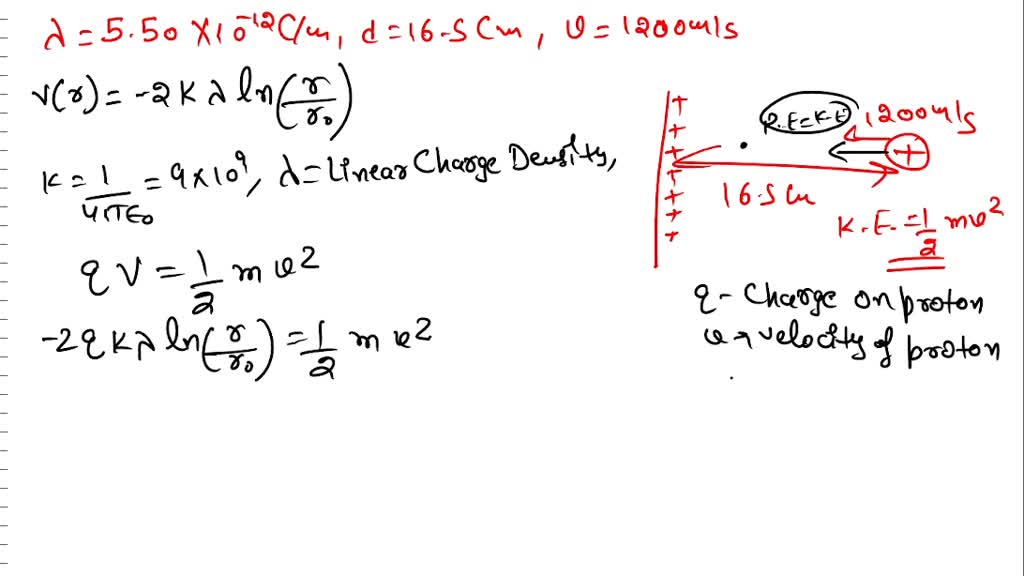 λ = 5.50 × 10⁻¹² C/m, d = 16.5 Cm, v = 1200 m/s
V(r) = -2 K λ ln(r/r₀)
K = 1/4πε₀ = 9 × 10⁹, λ = Linear Charge Density,
q V = 1/2 m v²
-2 q K λ ln(r/r₀) = 1/2 m v²
+
+
+
+
+
+
+
P.E = K.E
1200 m/s
+
16.5 Cm
K.E. = 1/2 m v²
q - Charge on proton
v → velocity of proton